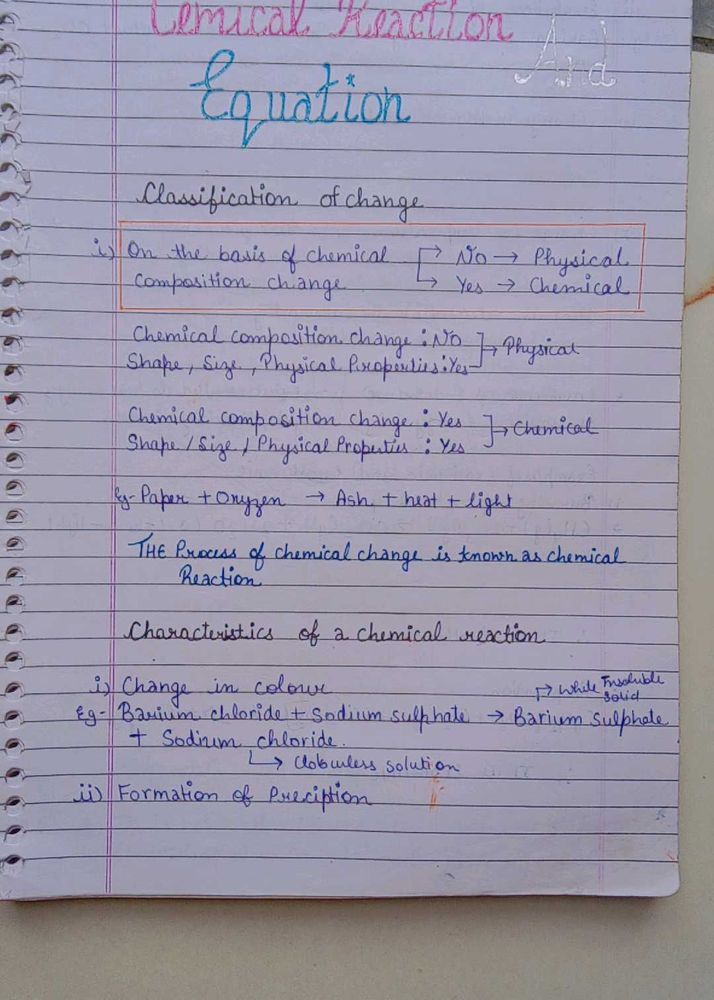 Cemical Reaction
And
Equation
Classification of change
i) On the basis of chemical composition change
→ No → Physical
→ Yes → Chemical
Chemical composition change : No
Shape, Size, Physical Properties : Yes
→ Physical
Chemical composition change : Yes
Shape / Size / Physical Properties : Yes
→ Chemical
Eg- Paper + Oxyzen → Ash + heat + light
THE Process of chemical change is known as chemical
Reaction
Characteristics of a chemical reaction
i) Change in colour
→ White Insoluble
Solid
Eg- Barium chloride + Sodium sulphate → Barium sulphate
+ Sodium chloride.
→ Cloburless solution
ii) Formation of Preciption